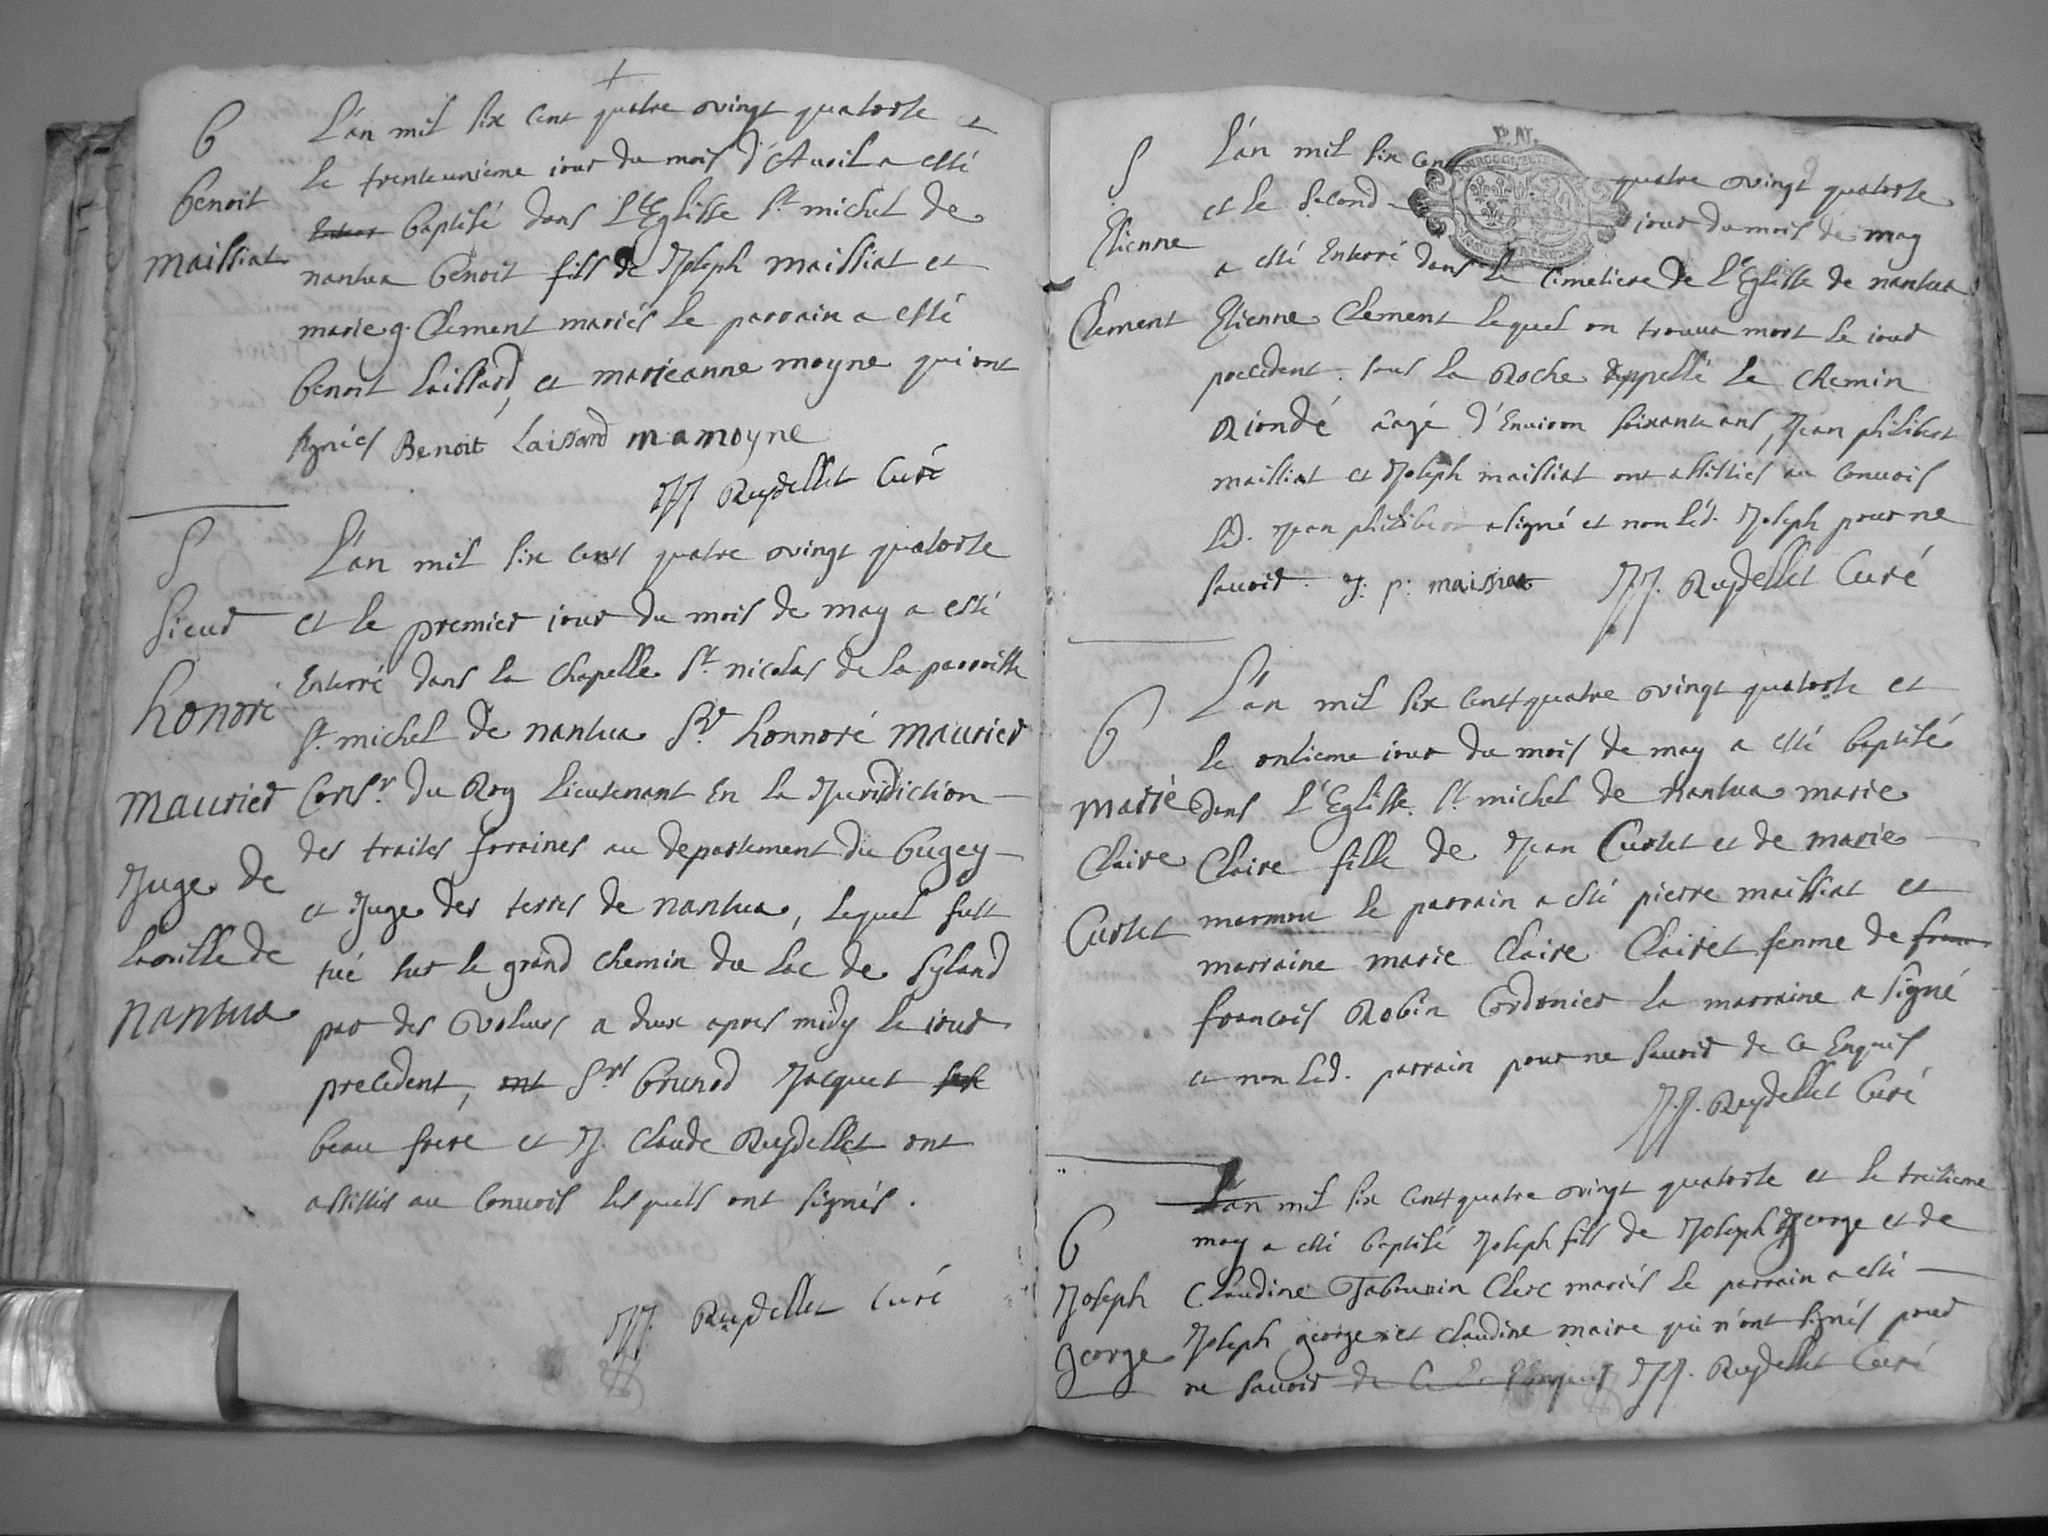 B
benoit
maissiat
L'an mil six cent quatre vingt quatorse et
le trenteunième iour du mois d'Auril a esté
baptisé dans l'Eglisse St michel de
nantua benoit fils de Joseph maissiat et
marie g. Clement mariés le parrain a esté
benoit Laissard, et marieanne moyne qui ont
signés Benoit Laissard mamoyne
JJ Ruydellet Curé
S
Sieur
honoré
maurier
Juge de
la ville de
nantua
L'an mil six cents quatre vingt quatorse
et le premier iour du mois de may a esté
Enterré dans la chapelle St nicolas de la parroisse
St michel de nantua Sr honnoré maurier
Consr. du Roy lieutenant En la Juridiction
des traites forraines au departement du bugey
et Juge des terres de nantua, lequel fust
tué sur le grand chemin du Lac de Syland
par des voleurs a deux apres midy le iour
precedent, ont Srs brunod Jacquet
beau frere et J. Claude Ruydellet ont
assistés au Convois lesquels ont signés.
JJ. Ruydellet Curé
S
Etienne
Clement
P.N.
L'an mil six cent quatre vingt quatorse
et le second iour du mois de may
a esté Enterré dans le Cimetiere de l'Eglisse de nantua
Etienne Clement lequel on trouua mort le iour
precedent sous la Roche appellé le chemin
Riondé âagé d'Enuiron soixante ans, Jean philibert
maissiat et Joseph maissiat ont assistés au Conuois
led. Jean philibert a signé et non led. Joseph pour ne
sauoir. J: p: maissiat JJ. Ruydellet Curé
B
marie
Claire
Curtet
L'an mil six cent quatre vingt quatorse et
le onsieme iour du mois de may a esté baptisé
dans l'Eglisse St michel de nantua marie
Claire fille de Jean Curtet et de marie
le parrain a esté pierre maissiat et
marraine marie Claire Clairet femme de
francois Robin Cordonier la marraine a signé
et non led. parrain pour ne sauoir de ce Enquis
J.J. Ruydellet Curé
B
Joseph
george
L'an mil six cent quatre vingt quatorse et le treisieme
may a esté baptisé Joseph fils de Joseph George et de
Claudine Clerc mariés le parrain a esté
Joseph george et claudine maire qui n'ont signés pour
ne sauoir de ce Enquis JJ. Ruydellet Curé